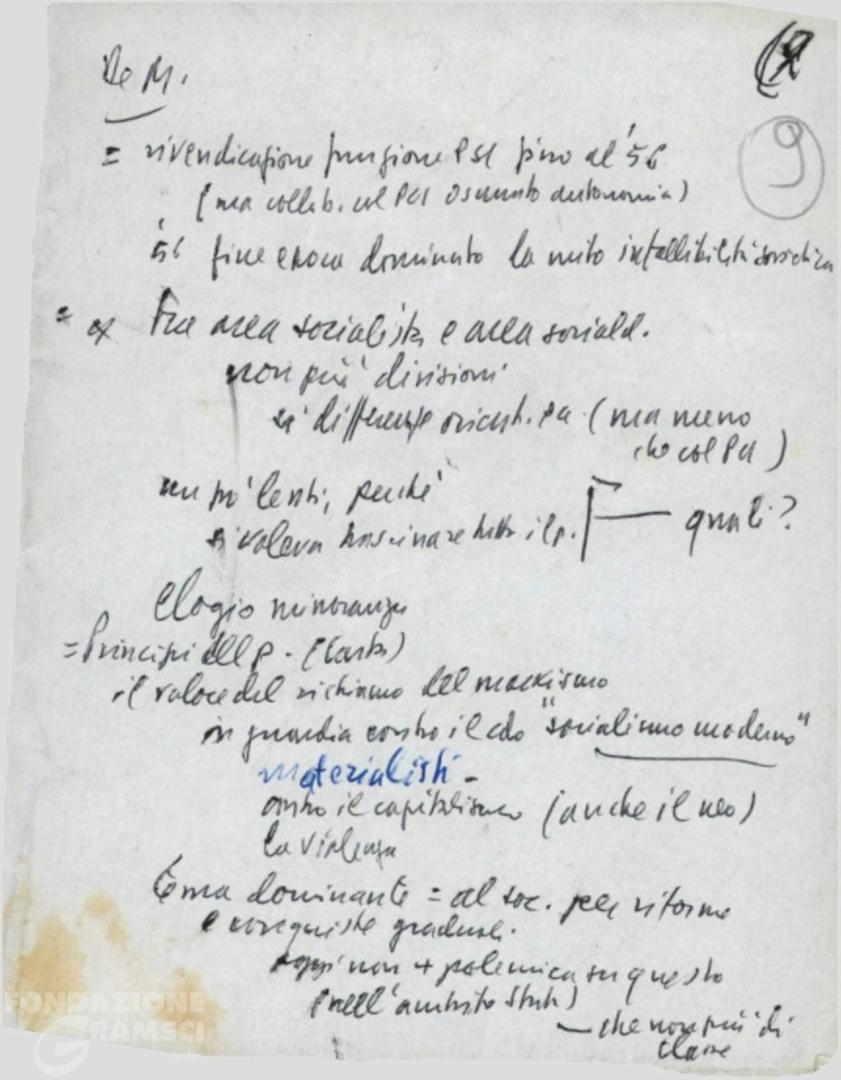 De M.
9
= rivendicazione funzione PSI fino al '56
(ma collab. col PCI autonomia)
'56 fine epoca dominato la mito infallibilità sovietica
= × Fra area socialista e area sociald.
non più divisioni
sì differenze orient. (ma meno
che col PCI)
un po' lenti, perché
si voleva trascinare tutto il p. quali?
Elogio minoranza
= Principi del p. (Carta)
il valore del richiamo del marxismo
in guardia contro il cdo "socialismo moderno"
materialisti -
contro il capitalismo (anche il neo)
la violenza
tema dominante = al soc. per riforme
e conquiste graduali.
oggi non + polemica su questo
(nell'ambito Stato)
— che non più di
classe
FONDAZIONE
GRAMSCI